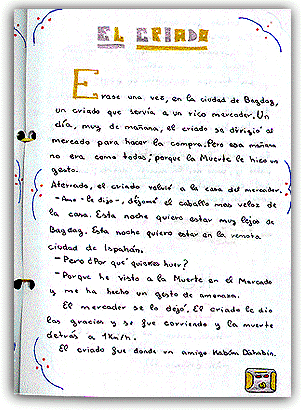 EL CRIADO
Erase una vez, en la ciudad de Bagdag,
un criado que servía a un rico mercader. Un
día, muy de mañana, el criado se dirigió al
mercado para hacer la compra. Pero esa mañana
no era como todas; porque la Muerte le hizo un
gesto.
Aterrado, el criado volvió a la casa del mercader.
-Amo- le dijo-, déjame el caballo mas veloz de
la casa. Esta noche quiero estar muy lejos de
Bagdag. Esta noche quiero estar en la remota
ciudad de Ispahán.
-Pero ¿Por qué quieres huer?
-Porque he visto a la Muerte en el Mercado
y me ha hecho un gesto de amenaza.
El mercader se lo dejó. El criado le dio
las gracias y se fue corriendo y la muerte
detrás a 1Km/h.
El criado fue donde un amigo Kabám Dahabin.